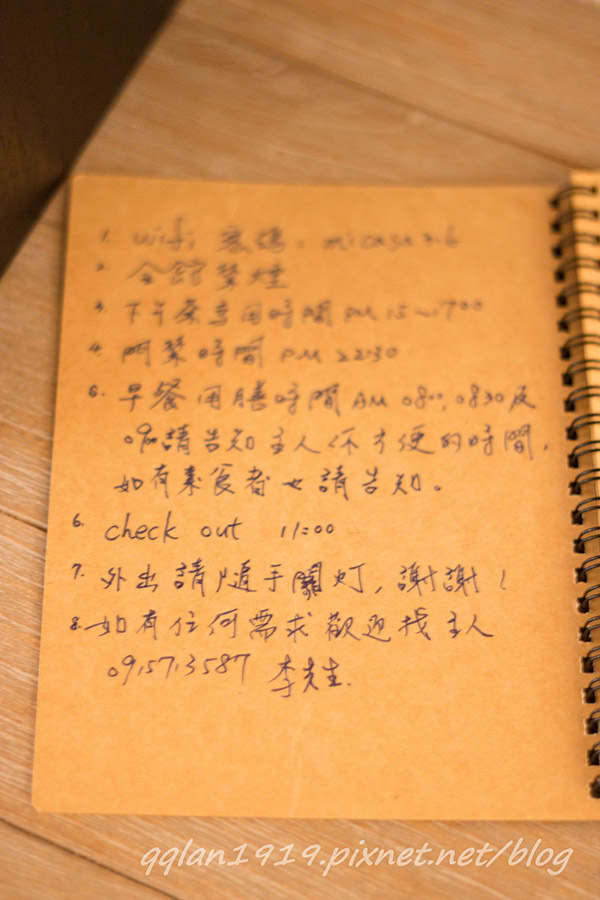 1. wifi 密碼:micasa
2. 會館禁煙
3. 下午茶享用時間 PM 15~1700
4. 門禁時間 PM 22:30
5. 早餐用膳時間 AM 0800, 0830 及
請告知主人你方便的時間,
如有素食者也請告知。
6. check out 11:00
7. 外出請隨手關灯,謝謝!
8. 如有任何需求歡迎找主人
李先生.
qqlan1919.pixnet.net/blog